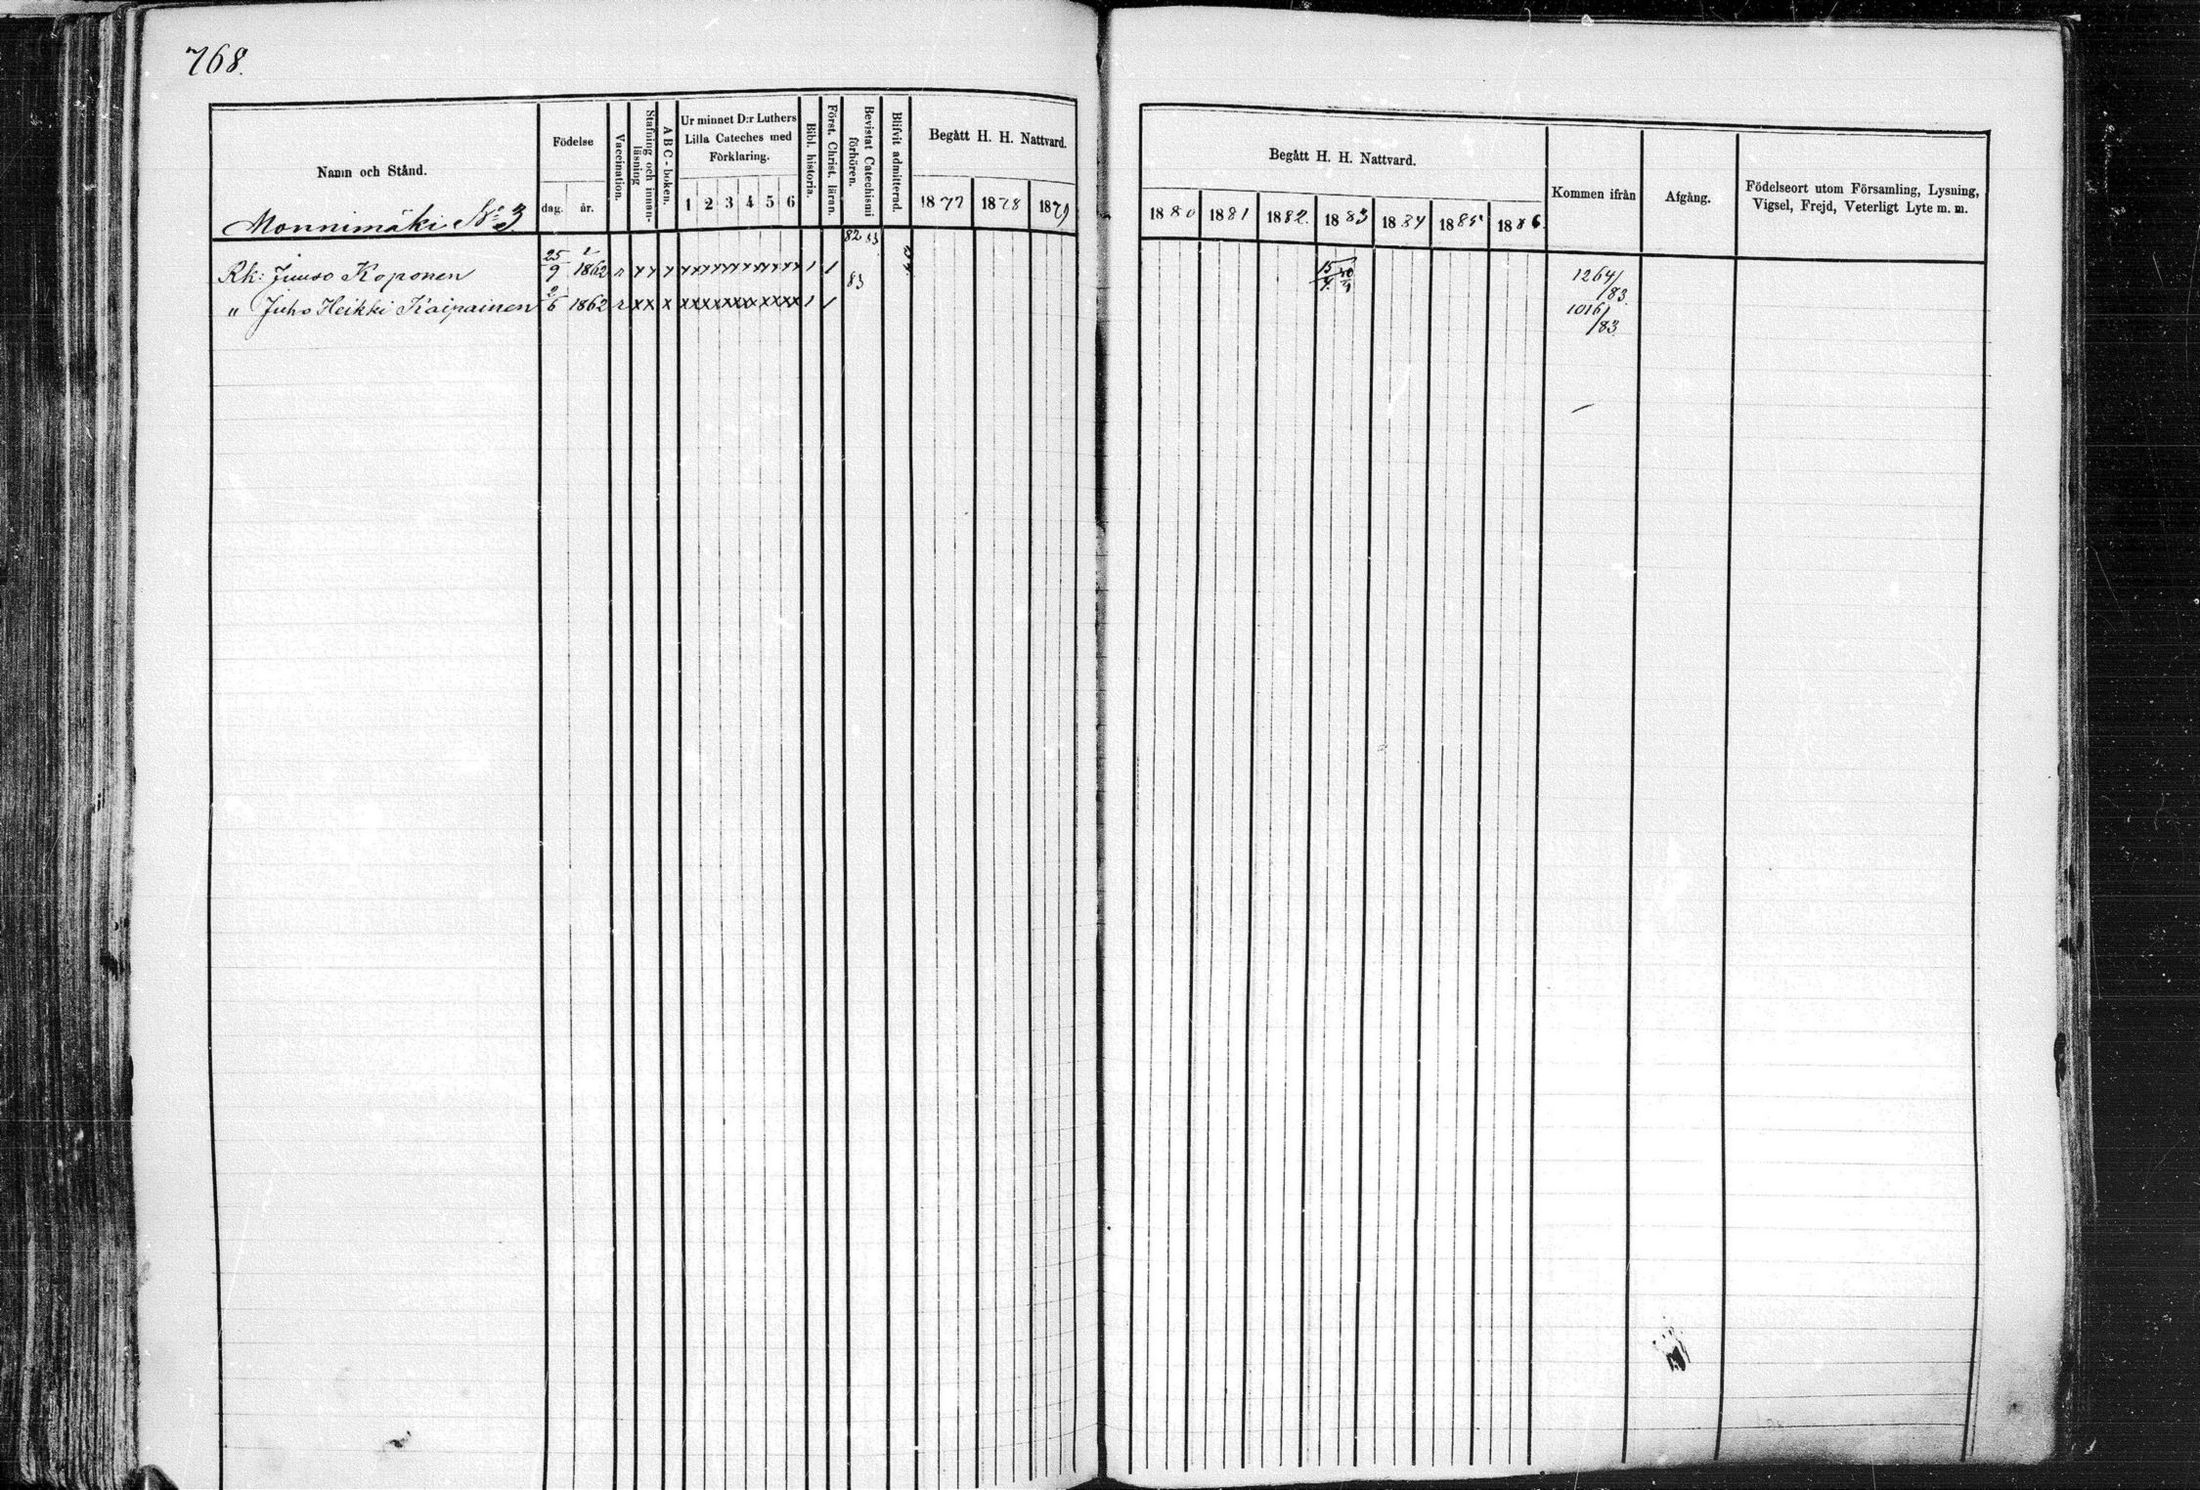 768.
Namn och Stånd.
Födelse
dag. år.
Vaccination.
Stafning och innanläsning
ABC-boken.
Ur minnet D:r Luthers Lilla Cateches med Förklaring.
1 2 3 4 5 6
Bibl. historia.
Först. Christ. läran.
Bevistat Catechismi förhören.
Blifvit admitterad.
Begått H. H. Nattvard.
1877 1878 1879
Begått H. H. Nattvard.
1880 1881 1882. 1883 1884 1885 1886.
Kommen ifrån
Afgång.
Födelseort utom Församling, Lysning, Vigsel, Frejd, Veterligt Lyte m. m.
Monnimäki No 3
82 83
Rk: Juuso Koponen 25/9 1862 1264/83.
83
" Juho Heikki Kaipainen 2/6 1862 1016/83